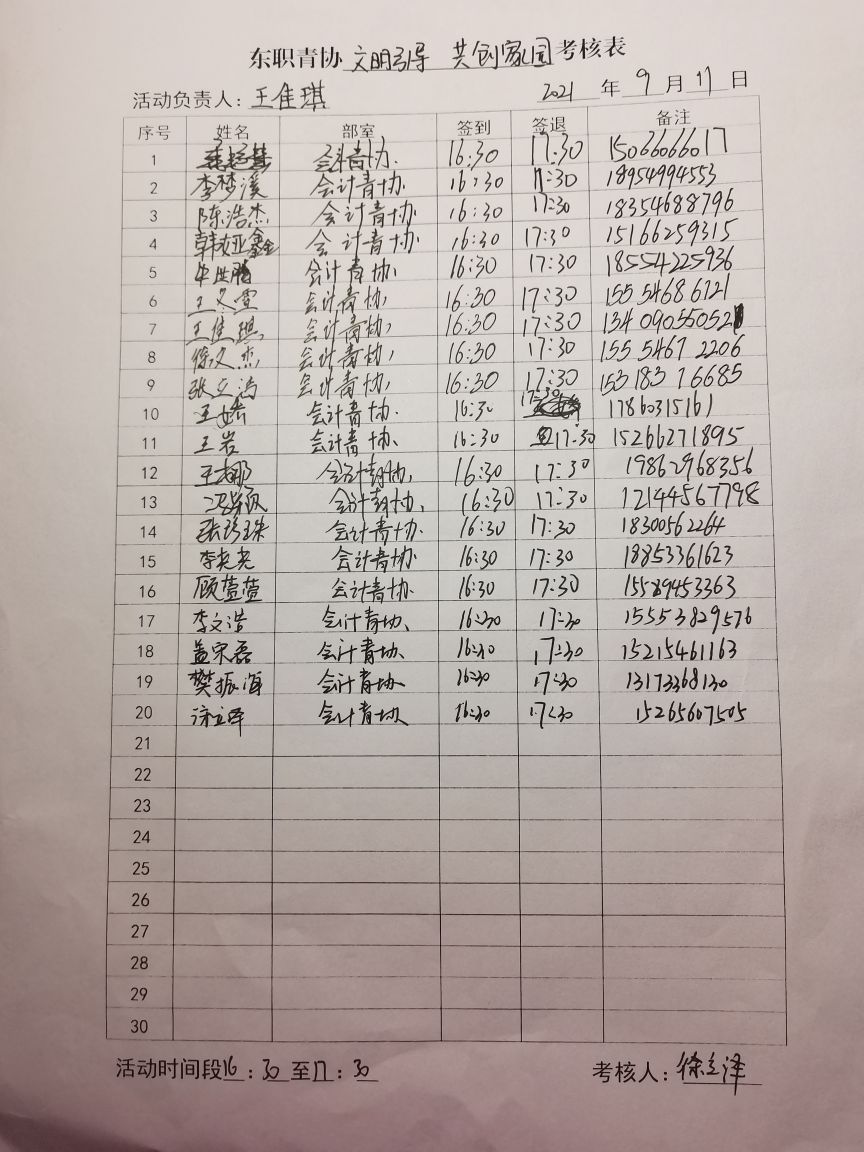 东职青协 文明引导 共创家园 考核表
活动负责人：王佳琪 2021 年 9 月 17 日
序号 姓名 部室 签到 签退 备注
1 会计青协 16:30 17:30 15066066017
2 李梦溪 会计青协 16:30 17:30 18954994553
3 陈浩杰 会计青协 16:30 17:30 18354688796
4 韩娅鑫 会计青协 16:30 17:30 15166259315
5 会计青协 16:30 17:30 18554225936
6 王文雪 会计青协 16:30 17:30 155 5468 6121
7 王佳琪 会计青协 16:30 17:30
8 徐文杰 会计青协 16:30 17:30 155 5467 2206
9 张立涛 会计青协 16:30 17:30 153 183 16685
10 会计青协 16:30 17:30 17860315161
11 王岩 会计青协 16:30 17:30 15266271895
12 王娜 会计青协 16:30 17:30 19862968356
13 会计青协 16:30 17:30 12144567798
14 张珍珠 会计青协 16:30 17:30 18300562264
15 会计青协 16:30 17:30 18853361623
16 顾萱萱 会计青协 16:30 17:30 15589453363
17 李文浩 会计青协 16:30 17:30 15553829576
18 盖宋磊 会计青协 16:30 17:30 15215461163
19 樊振海 会计青协 16:30 17:30 13173368130
20 徐立泽 会计青协 16:30 17:30 15265607505
21
22
23
24
25
26
27
28
29
30
活动时间段16：30至17：30 考核人：徐立泽